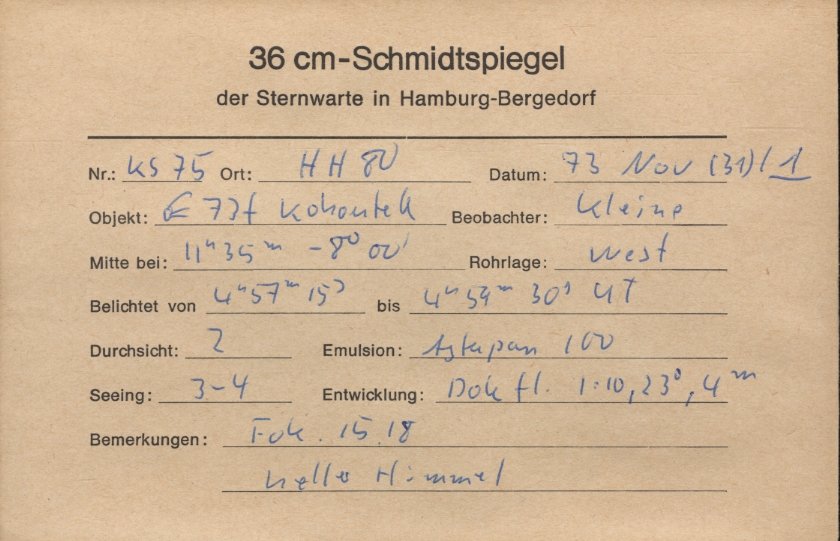 36 cm-Schmidtspiegel
der Sternwarte in Hamburg-Bergedorf
Nr.: KS 75 Ort: HH 80 Datum: 73 Nov (31)/1
Objekt: 73f Kohoutek Beobachter: Kleine
Mitte bei: 11ʰ35ᵐ -8⁰00' Rohrlage: West
Belichtet von 4ʰ57ᵐ15ˢ bis 4ʰ59ᵐ30ˢ UT
Durchsicht: 2 Emulsion: Agfapan 100
Seeing: 3-4 Entwicklung: Dok fl. 1:10, 23⁰, 4ᵐ
Bemerkungen: Fok. 15.18
heller Himmel